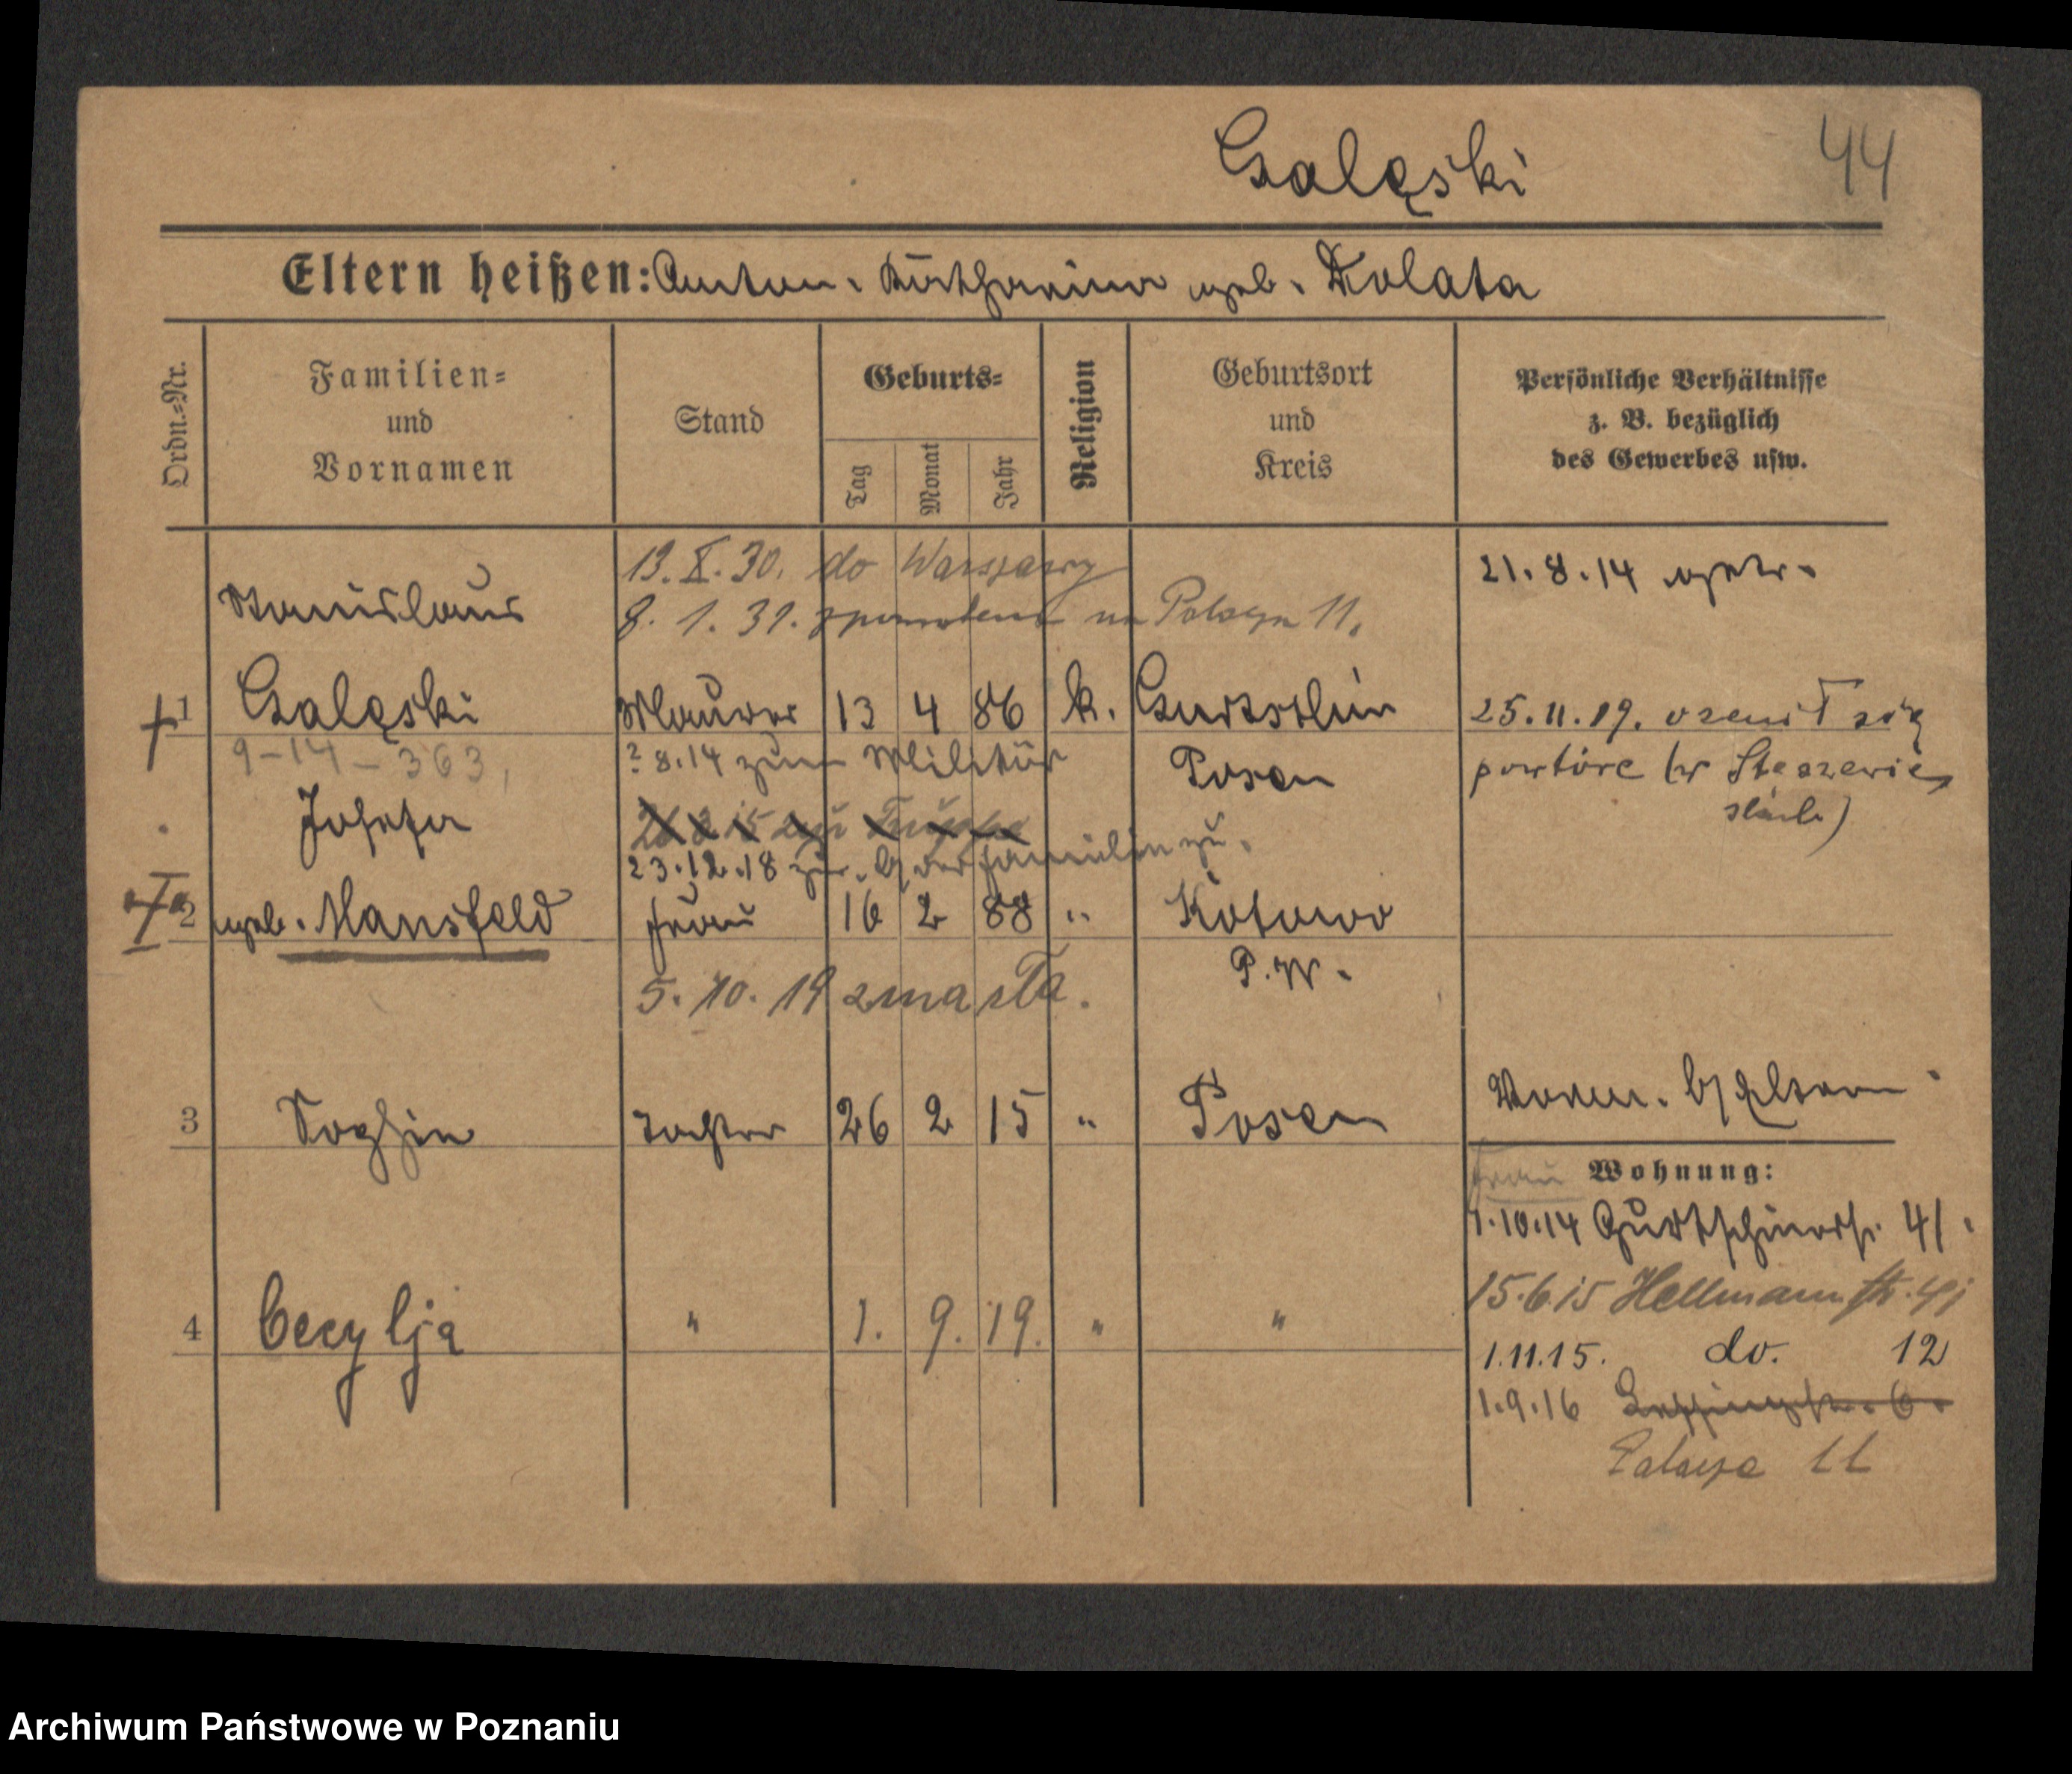 Galęski 44
Eltern heißen: Anton, Katharina geb. Kolata
Ordn.-Nr.
Familien-
und
Vornamen
Stand
Geburts-
Tag
Monat
Jahr
Religion
Geburtsort
und
Kreis
Persönliche Verhältnisse
z. B. bezüglich
des Gewerbes usw.
13. X. 30. do Warszawy
8. 1. 31. z powrotem na Polsyn 11.
21.8.14 getr.
Stanislaus
1 Galęski Maurer 13 4 86 k. Gurtschin
Posen
25.11.19. ożenił się
powtórc (w Stęszewie,
ślub)
9-14-363,
? 8.14 zum Militär
Josefa
23.12.18 zur. b/ der Familie zu.
2 geb. Mansfeld Frau 16 2 88 " Kotowo
P.W.
5. 10. 19 zmarła.
3 Sophie Tochter 26 2 15 " Posen
Vorm. b/ Eltern
Frau Wohnung:
1.10.14 Gurtschinerstr. 41.
15.6.15 Hellmannstr. 41
1.11.15. do. 12
1.9.16 Lessingstr. 6.
11
4 Cecylja " 1. 9. 19. " "
Archiwum Państwowe w Poznaniu